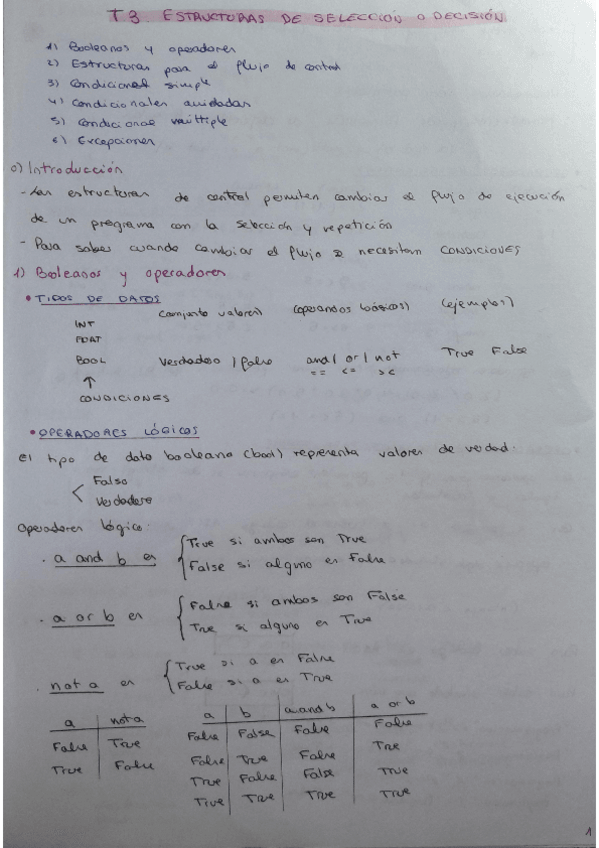 T3 ESTRUCTURAS DE SELECCIÓN O DECISIÓN
1) Booleanos y operadores
2) Estructuras para el flujo de control
3) Condicional simple
4) Condicionales anidadas
5) Condicional múltiple
6) Excepciones
0) Introducción
- Las estructuras de control permiten cambiar el flujo de ejecución
de un programa con la selección y repetición
- Para saber cuando cambiar el flujo se necesitan CONDICIONES
1) Booleanos y operadores
• TIPOS DE DATOS (conjunto valores) (operandos básicos) (ejemplos)
INT
FOAT
BOOL verdadero / falso and / or / not True False
== <=
↑
CONDICIONES
• OPERADORES LÓGICOS
El tipo de dato booleano (bool) representa valores de verdad.
Falso
Verdadero
Operadores lógico:
. a and b es True si ambos son True
False si alguno es False
. a or b es False si ambos son False
True si alguno es True
. not a es True si a es False
False si a es True
a not a a b a and b a or b
False True False False False False
True False False True False True
True False False True
True True True True
1